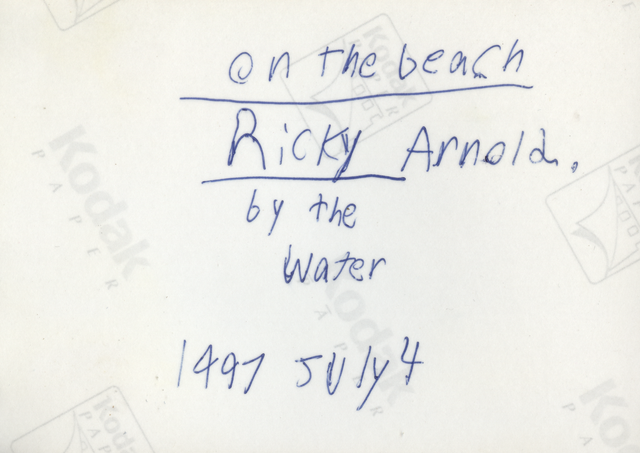 on the beach
Ricky Arnold.
by the
water
1997 July 4
Kodak
PAPER
Kodak
PAPER
Kodak
PAPER
Kodak
PAPER
Kodak